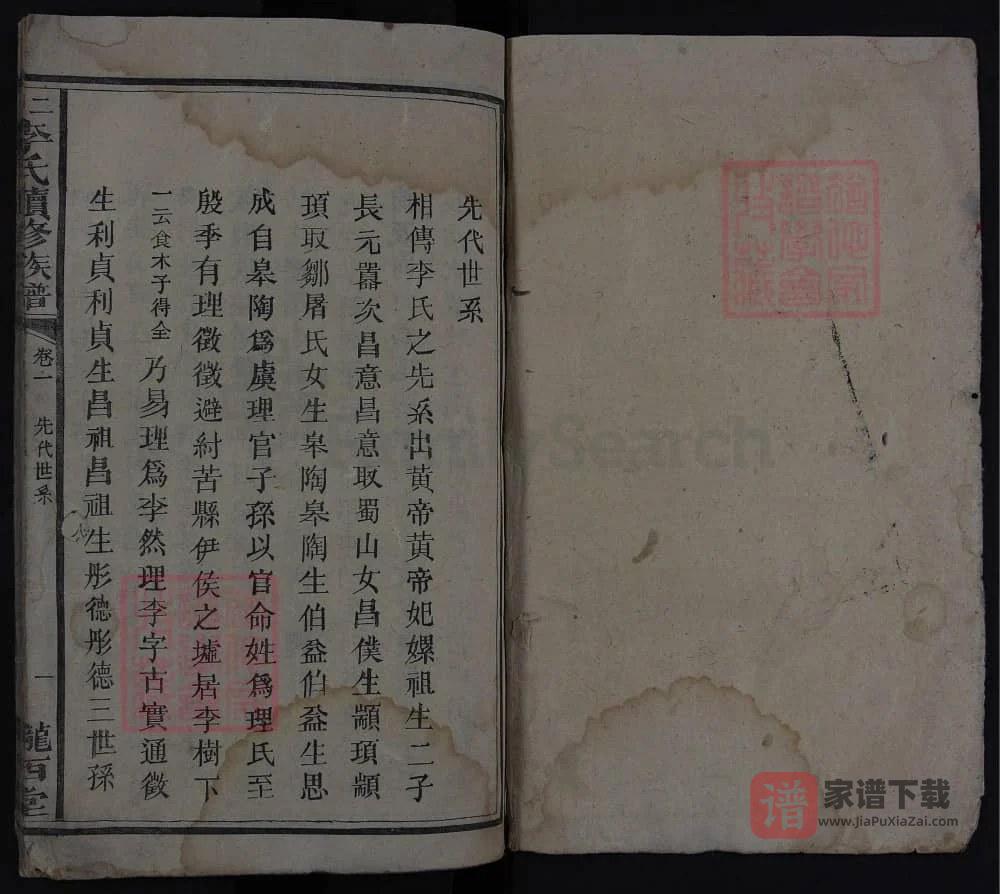 先代世系
相傳李氏之先系出黃帝黃帝妃嫘祖生二子
長元囂次昌意昌意取蜀山女昌僕生顓頊顓
頊取鄒屠氏女生皋陶皋陶生伯益伯益生恩
成自皋陶爲虞理官子孫以官命姓爲理氏至
殷季有理徵徵避紂苦縣伊侯之墟居李樹下
一云食木子得全乃易理爲李然理李字古實通徵
生利貞利貞生昌祖昌祖生彤德彤德三世孫
二李氏續修族譜
卷一
先代世系
一
隴西堂
Search
谱
家谱下载
www.JiaPuXiaZai.com